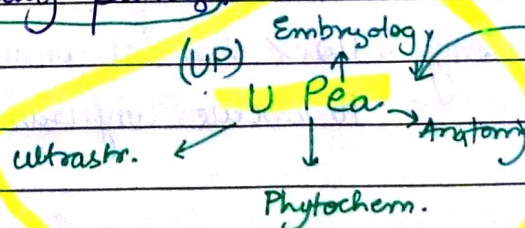 Embryology
(UP)
U Pea
Anatomy
ultrastr.
Phytochem.